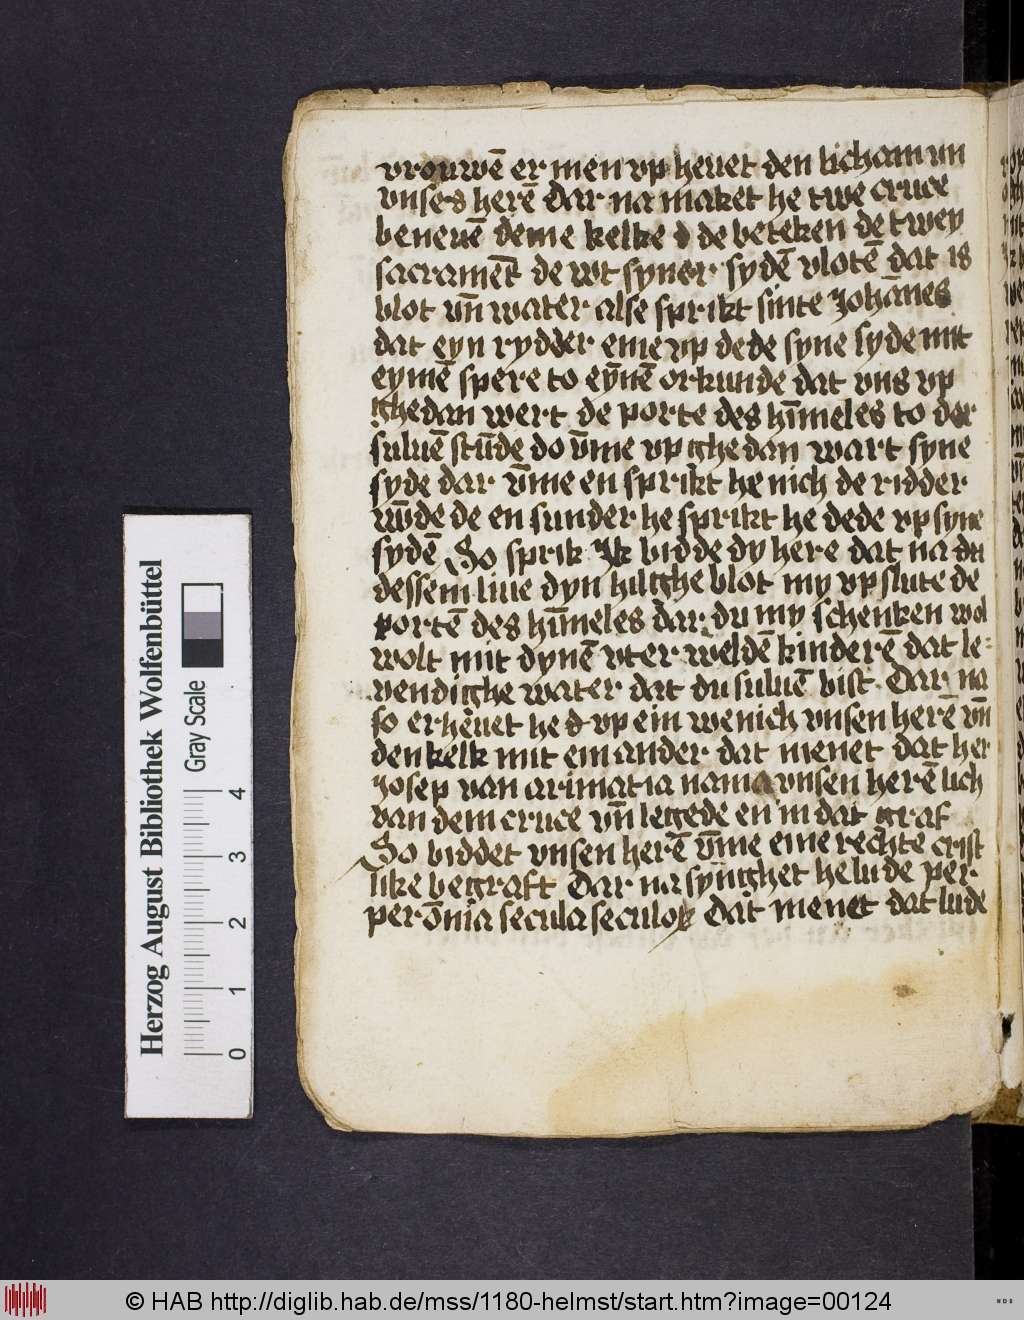 vrouwē er men vp heuet den licham vn
vnses herē Dar na maket he twe cruce
beneuē deme kelke de beteken de twey
sacramēt de wt syner sydē vlotē dat is
blot vn̄ water alse sprikt sinte Johānes
dat eyn rydder eme vp dede syne syde mit
eymē spere to eynē orkunde dat vns vp
ghedan wert de porte des hīmeles to der
suluē stūde do v̄me vp ghedan wart syne
syde dar v̄me en sprikt he nich de ridder
wūde de en sunder he sprikt he dede vp syne
sydē So sprik Jk bidde dy here dat na du
dessem liue dyn hilghe blot my vp slute de
portē des hīmeles dar du my schenken wol
wolt mit dynē vter weldē kinderē dat le-
vendighe water dat du suluē bist Dar na
so erheuet he d vp ein wenich vnsen herē vn̄
den kelk mit em ander dat menet dat her
Josep van arimatia nam vnsen herē lich
van dem cruce vn̄ legede en in dat graf
So biddet vnsen herē v̄me eine rechte crist
like begraft Dar na synghet he lude per
per ōmia secula seculoꝝ Dat menet dat lude
Herzog August Bibliothek Wolfenbüttel
Gray Scale
0 1 2 3 4
© HAB http://diglib.hab.de/mss/1180-helmst/start.htm?image=00124